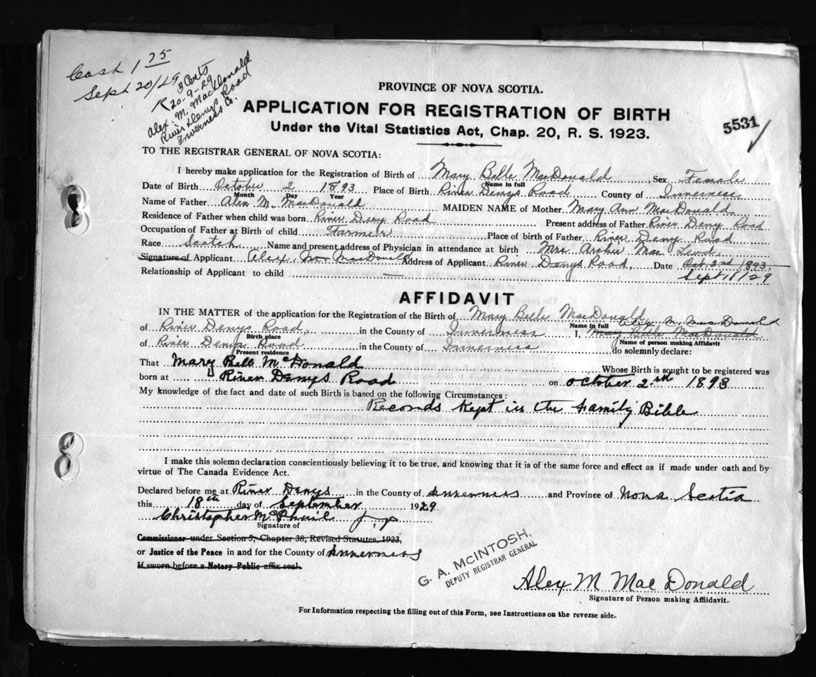 Cash 1 75
Sept 20/29
3 Certs
R 20-9-29
Alex. M. MacDonald
River Denys Road
Inverness Co.
PROVINCE OF NOVA SCOTIA.
APPLICATION FOR REGISTRATION OF BIRTH
Under the Vital Statistics Act, Chap. 20, R. S. 1923.
5531
TO THE REGISTRAR GENERAL OF NOVA SCOTIA:
I hereby make application for the Registration of Birth of Mary Belle MacDonald, Sex Female
Name in full
Date of Birth October 2 1893 Place of Birth River Denys Road County of Inverness
Month Day Year
Name of Father Alex M. MacDonald MAIDEN NAME of Mother Mary Ann MacDonald
Residence of Father when child was born River Deny Road Present address of Father River Deny Road
Occupation of Father at Birth of child Farmer Place of birth of Father River Deny Road
Race Scotch Name and present address of Physician in attendance at birth Mrs Archie Mac
Signature of Applicant Alex MacDonald Address of Applicant River Denys Road, Date Oct 2nd 1893
Sept 18/29
Relationship of Applicant to child
AFFIDAVIT
IN THE MATTER of the application for the Registration of the Birth of Mary Belle MacDonald
Name in full Alex M. MacDonald
of River Denys Road, in the County of Inverness I, Mary Belle MacDonald
Birth place Name of person making Affidavit
of River Denys Road in the County of Inverness do solemnly declare:
Present residence
That Mary Bell McDonald Whose Birth is sought to be registered was
born at River Denys Road on October 2nd 1893
My knowledge of the fact and date of such Birth is based on the following Circumstances:
Records Kept in the Family Bible
I make this solemn declaration conscientiously believing it to be true, and knowing that it is of the same force and effect as if made under oath and by
virtue of The Canada Evidence Act.
Declared before me at River Denys in the County of Inverness and Province of Nova Scotia
this 18th day of September 1929
Christopher McPhail J. P.
Signature of
Commissioner under Section 5, Chapter 38, Revised Statutes, 1923,
or Justice of the Peace in and for the County of Inverness
If sworn before a Notary Public affix seal.
G. A. McINTOSH.
DEPUTY REGISTRAR GENERAL
Alex M MacDonald
Signature of Person making Affidavit.
For Information respecting the filling out of this Form, see Instructions on the reverse side.